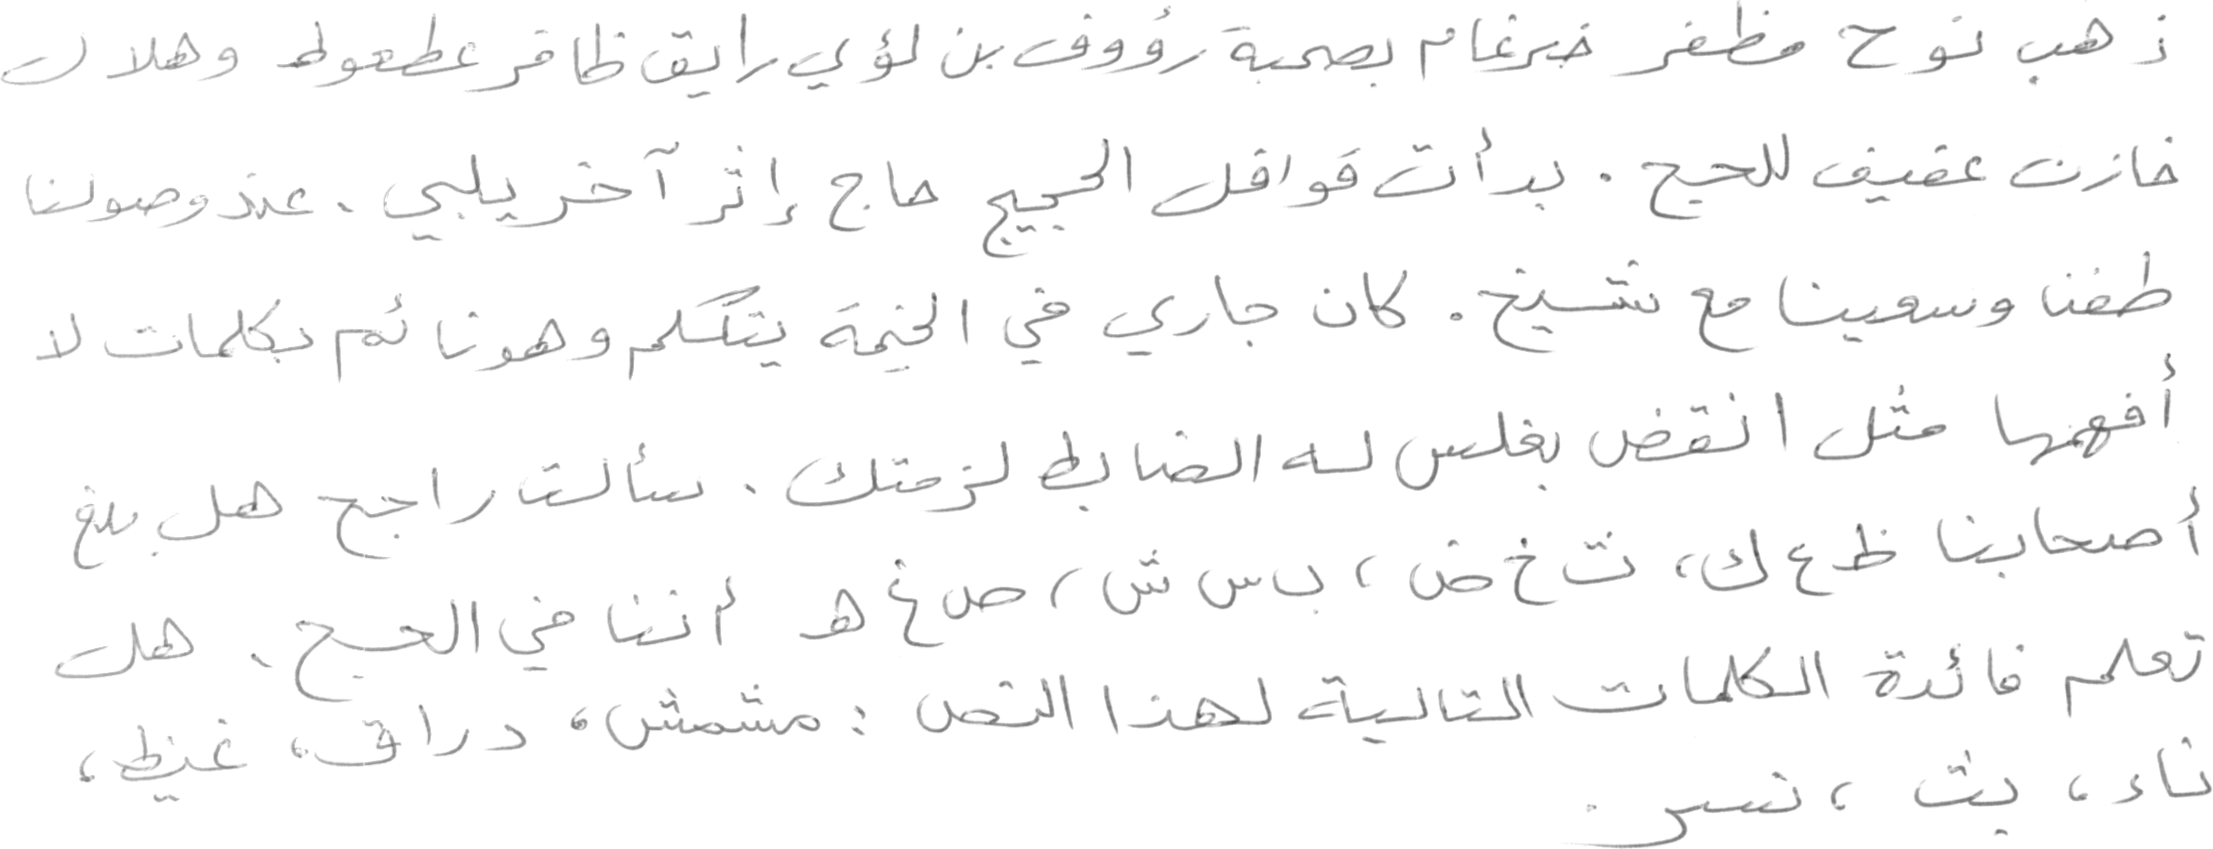 ذهب نوح مظفر ضرغام بصحبة رؤوف بن لؤي رايق ظافر عطعوط وهلال
خازن عفيف للحج . بدأت قوافل الحجيج حاج إثر آخر يلبي . عند وصولنا
طفنا وسعينا مع شيخ . كان جاري في الخيمة يتكلم وهو نائم بكلمات لا
أفهمها مثل انقض بغلس له الضابط لزمتك . سألت راجح هل بلغ
أصحابنا ظ ع ك، ث خ ض ، ب س ش ، ص غ هـ أننا في الحج . هل
تعلم فائدة الكلمات التالية لهذا النص : مشمش، دراق، غيظ،
ناء، بث ، نسر .